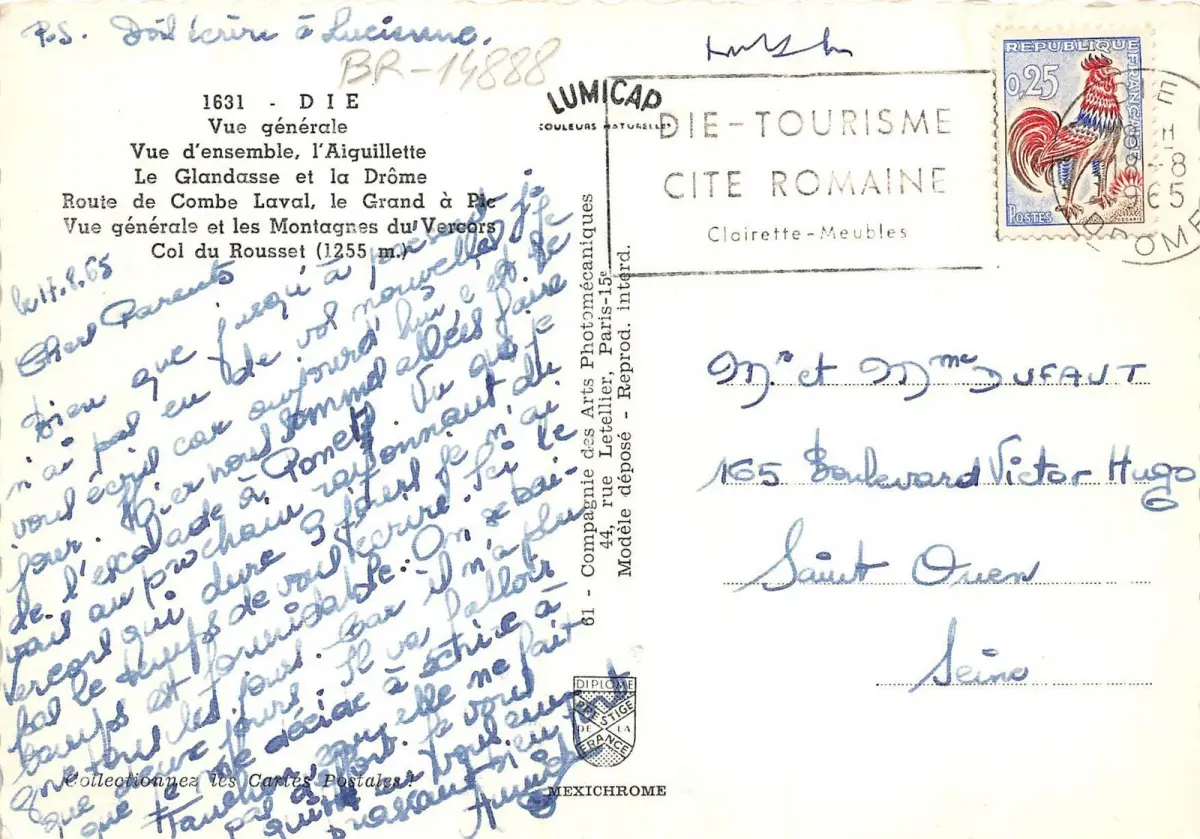 P.S. Doit écrire à Lucienne.
BR-14888
1631 - DIE
Vue générale
Vue d'ensemble, l'Aiguillette
Le Glandasse et la Drôme
Route de Combe Laval, le Grand à Pic
Vue générale et les Montagnes du Vercors
Col du Rousset (1255 m.)
LUMICAP
COULEURS NATURELLES
DIE-TOURISME
CITE ROMAINE
Clairette-Meubles
REPUBLIQUE FRANÇAISE
0,25
POSTES
DIE
18-8
1965
DROME
le 17.8.65
Chers Parents
Bien que jusqu'à présent je
n'ai pas eu de vos nouvelles je
vous écris car aujourd'hui c'est le
jour. Hier nous sommes allées faire
de l'escalade à Ponet. Vu que je
vais au prochain rayonnant du
Vercors qui dure 9 jours je n'ai
pas le temps de vous écrire. Ici le
temps est formidable. On se bai-
gne tous les jours. Car il n'a plu
que deux jours. Il va falloir
que je me décide à écrire à
pas elle ne fait
Je vous
61 - Compagnie des Arts Photomécaniques
44, rue Letellier, Paris-15e
Modèle déposé - Reprod. interd.
Mr et Mme DUFAUT
165 Boulevard Victor Hugo
Saint Ouen
Seine
DIPLOME
PRESTIGE
DE LA
FRANCE
Collectionnez les Cartes Postales!
MEXICHROME